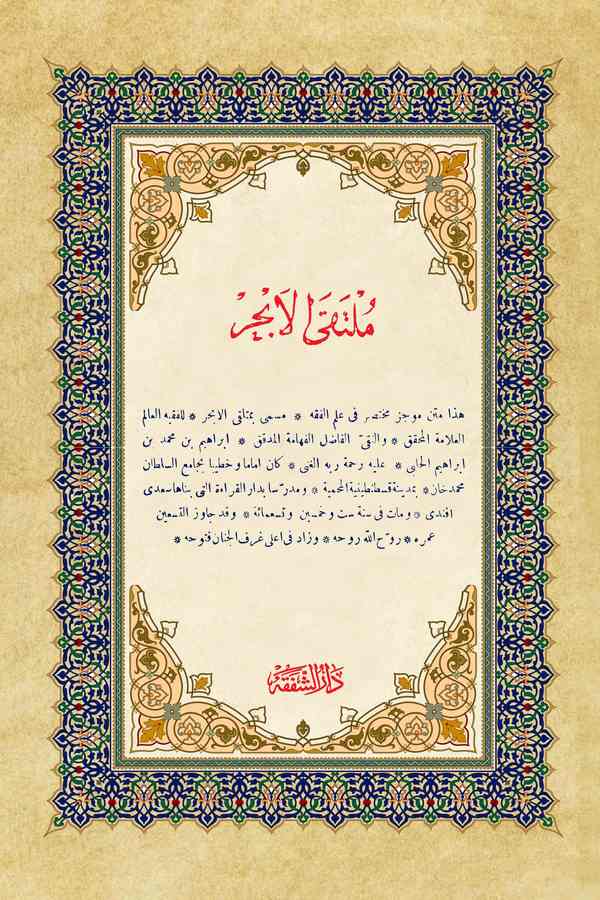 مُلْتَقَى الْاَبْحُرْ
هذا متن موجز مختصر فى علم الفقه * مسمى بملتقى الابحر * للفقيه العالم
العلامة المحقق * والتقىّ الفاضل الفهامة المدقق * ابراهيم بن محمد بن
ابراهيم الحلبى * عليه رحمة ربه الغنى * كان اماما وخطيبا بجامع السلطان
محمد خان * بمدينة قسطنطينية المحمية * ومدرّسا بدار القراءة التى بناها سعدى
افندى * ومات فى سنة ست وخمسين وتسعمائة * وقد جاوز التسعين
عمره * روّح الله روحه * وزاد فى اعلى غرف الجنان فتوحه *
دَارُ الشَّفَقَةِ